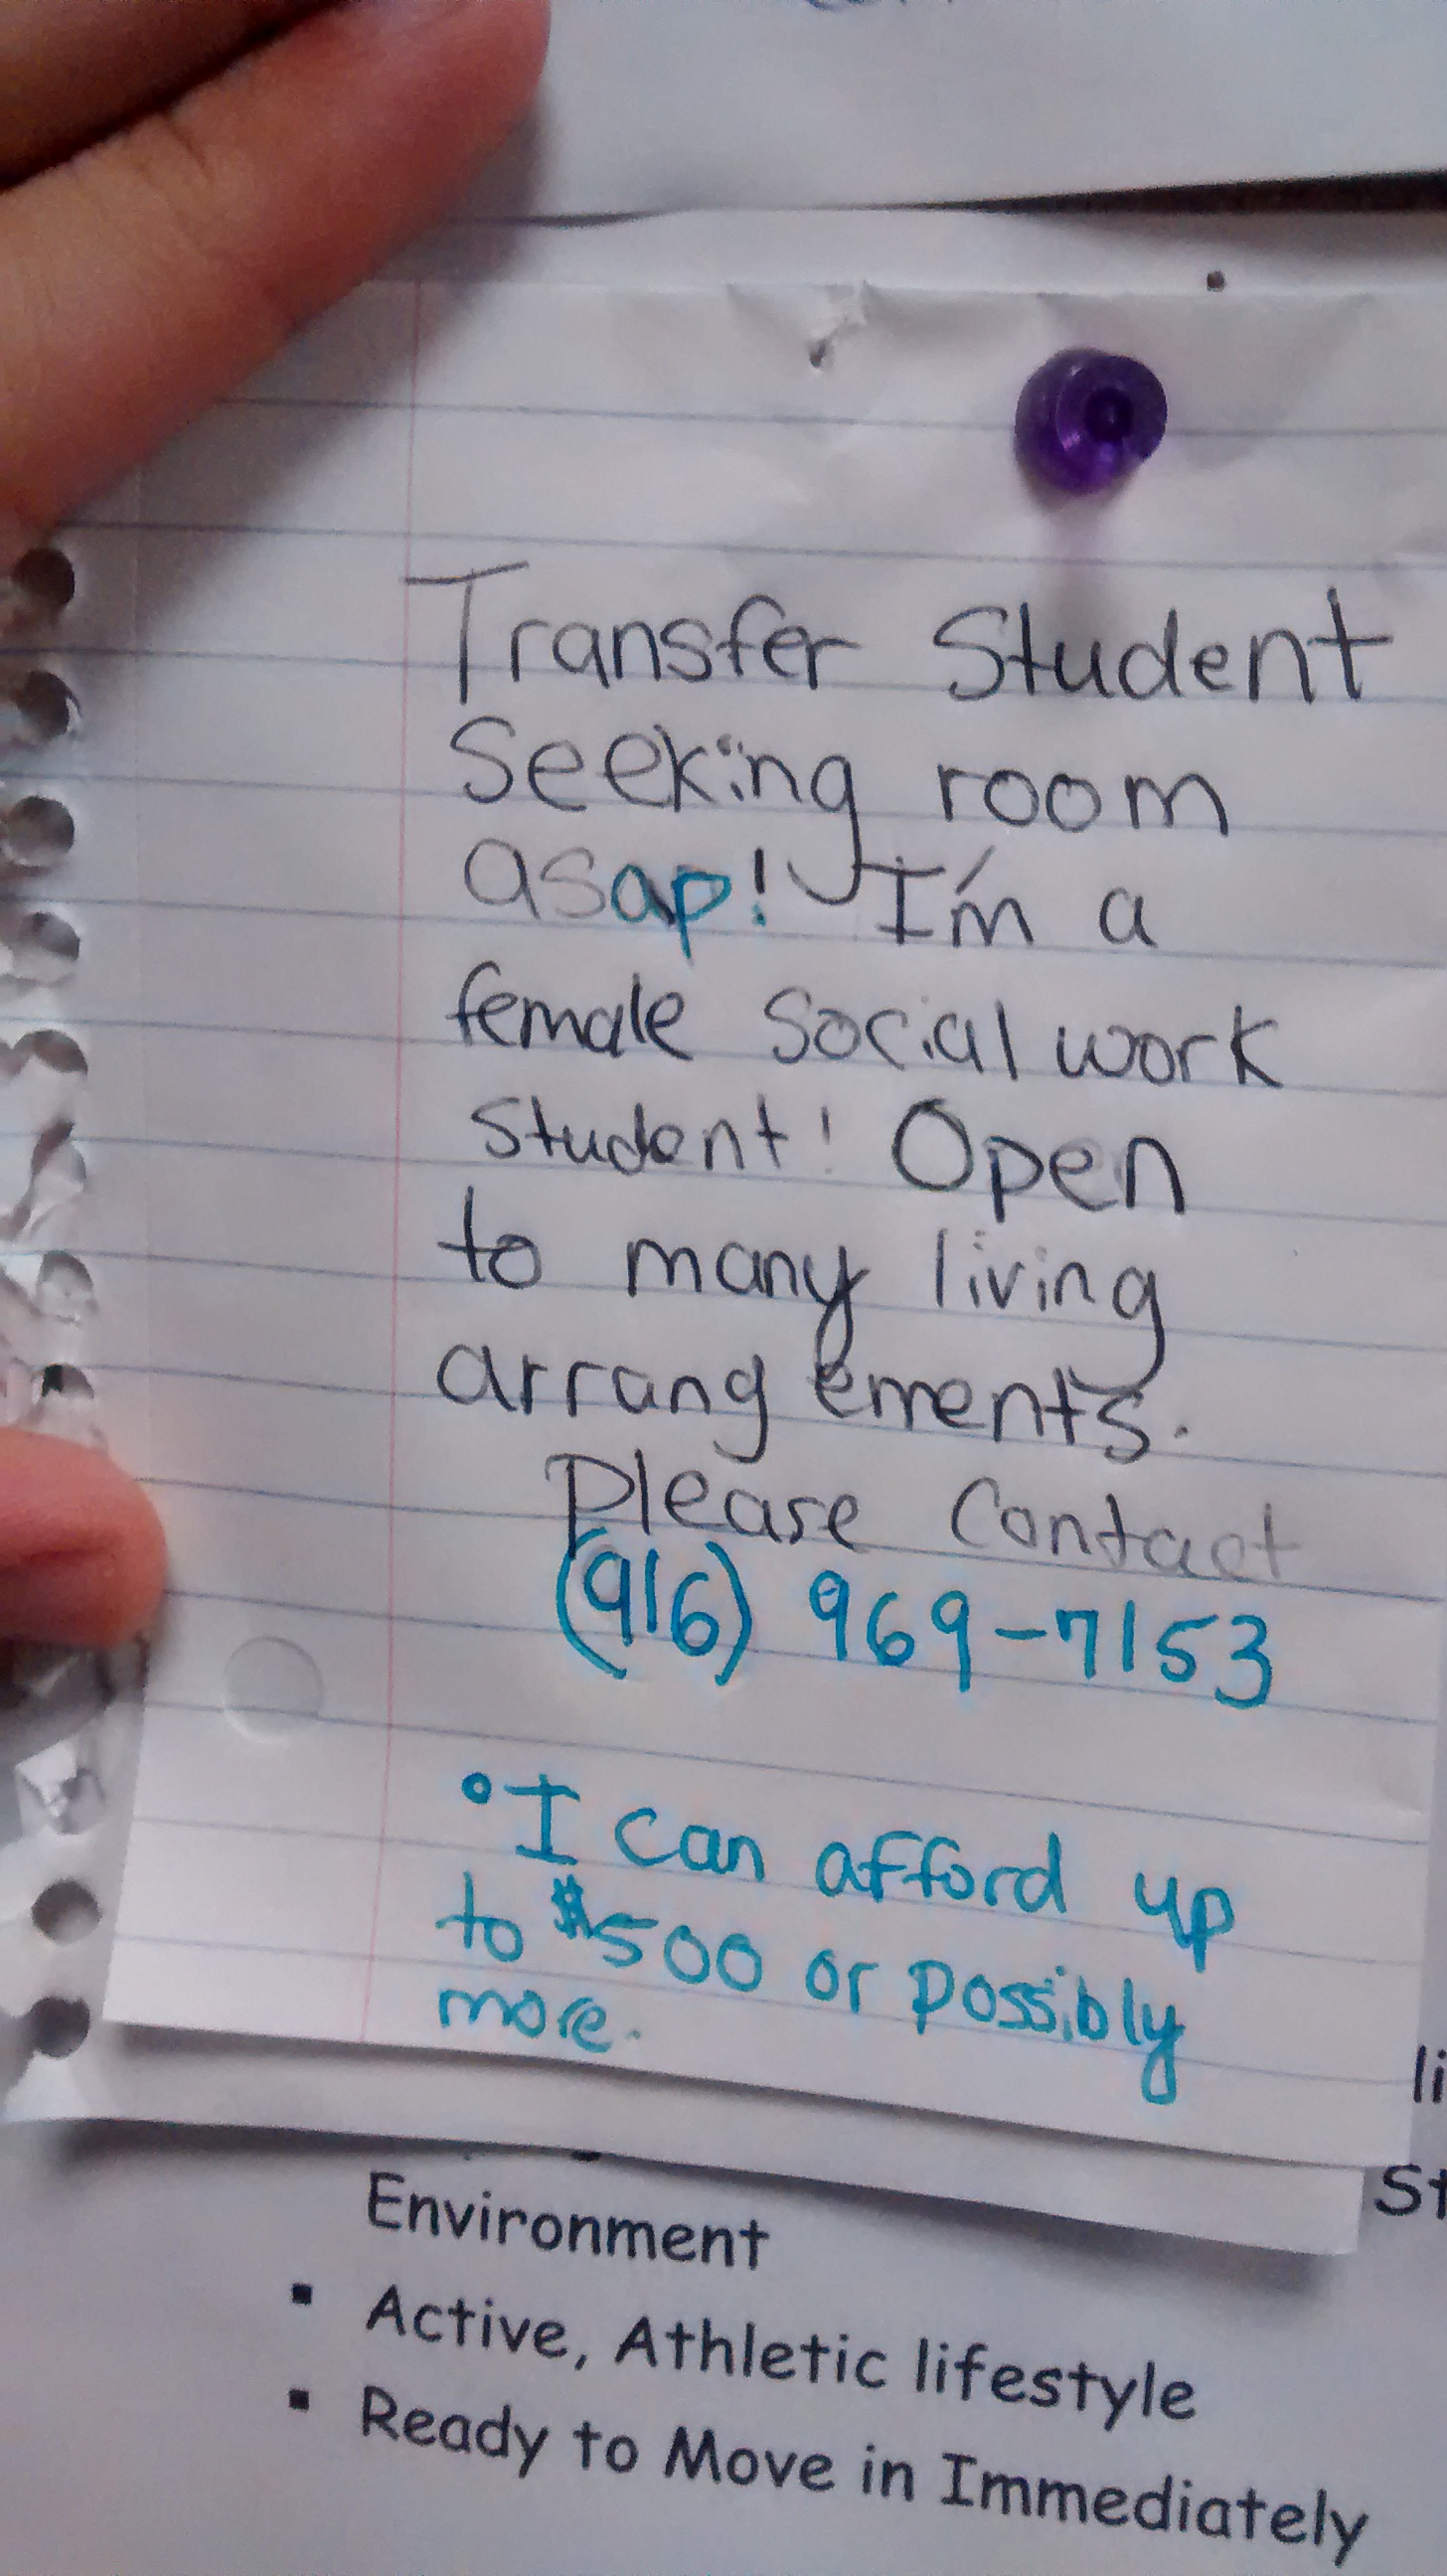 Transfer Student
Seeking room
asap! I'm a
female social work
student! Open
to many living
arrangements.
Please contact
(916) 969-7153
° I can afford up
to $500 or possibly
more.
li
St
Environment
▪ Active, Athletic lifestyle
▪ Ready to Move in Immediately